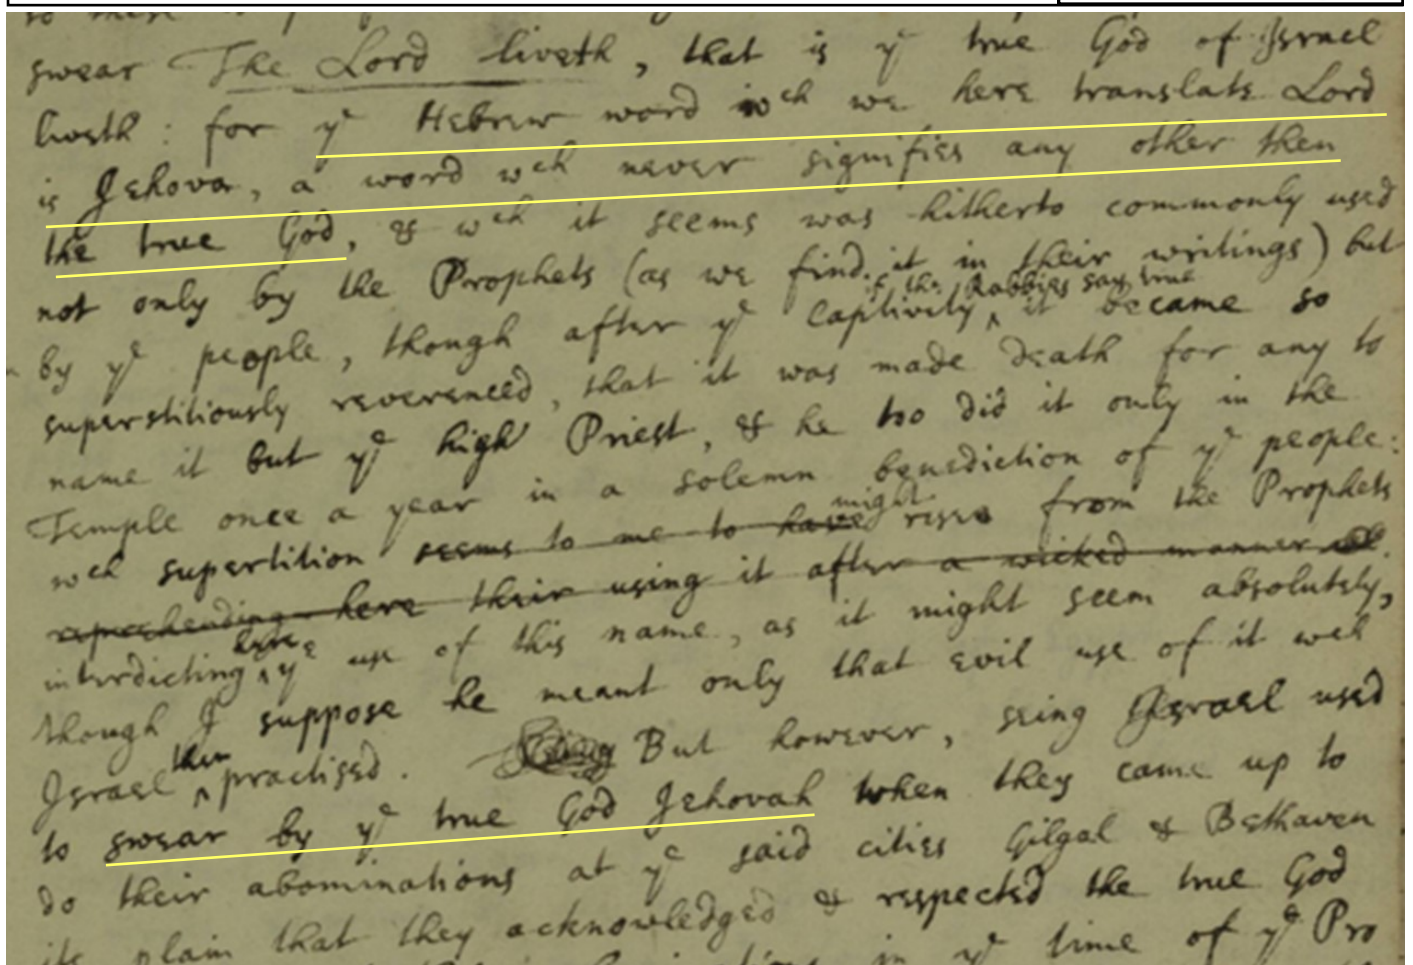 swear The Lord liveth, that is yͤ true God of Israel
liveth: for yͤ Hebrew word wᶜʰ we here translate Lord
is Jehova, a word wᶜʰ never signifies any other then
the true God, & wᶜʰ it seems was hitherto commonly used
not only by the Prophets (as we find it in their writings) but
if the Rabbies say true
by yͤ people, though after yͤ captivity ‸ it became so
superstitiously reverenced, that it was made death for any to
name it but yͤ high Priest, & he too did it only in the
Temple once a year in a solemn benediction of yͤ people:
might
wᶜʰ superstition seems to me to have rise from the Prophets
reprehending here their using it after a wicked manner
here
interdicting ‸ yͤ use of this name, as it might seem absolutely,
though I suppose he meant only that evil use of it wᶜʰ
then
Israel ‸ practised. But however, seing Israel used
to swear by yͤ true God Jehovah when they came up to
do their abominations at yͤ said cities Gilgal & Bethaven
its plain that they acknowledged & respected the true God
in yͤ time of yͤ Pro